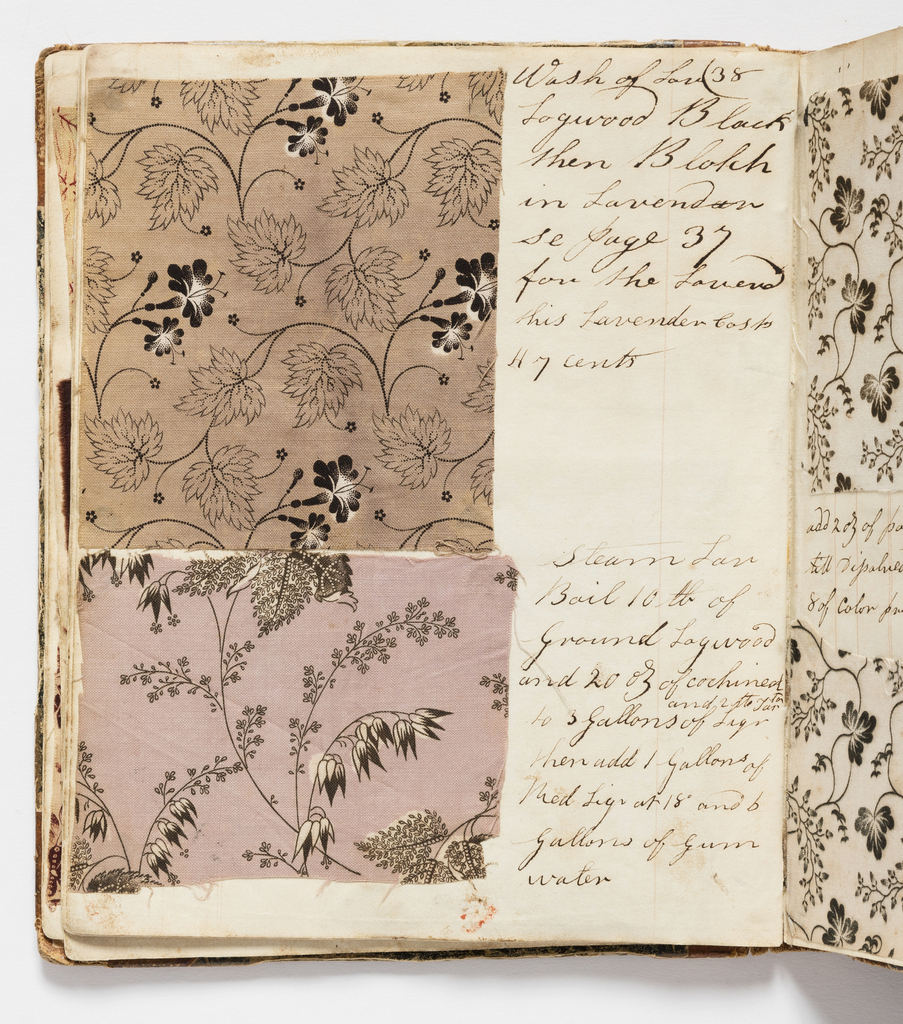 Wash of Lav (38
Logwood Black
then Blokh
in Lavendar
se page 37
for the Lavend
this Lavender Costs
47 cents
Steam Lav
Boil 10 lb of
Ground Logwood
and 20 oz of cochineal
and 2 lb Tar
to 3 Gallons of Liqr
then add 1 Gallons of
Red Liqr at 18° and 6
Gallons of Gum
water
add 2 oz of
till Disolved
8 of Color